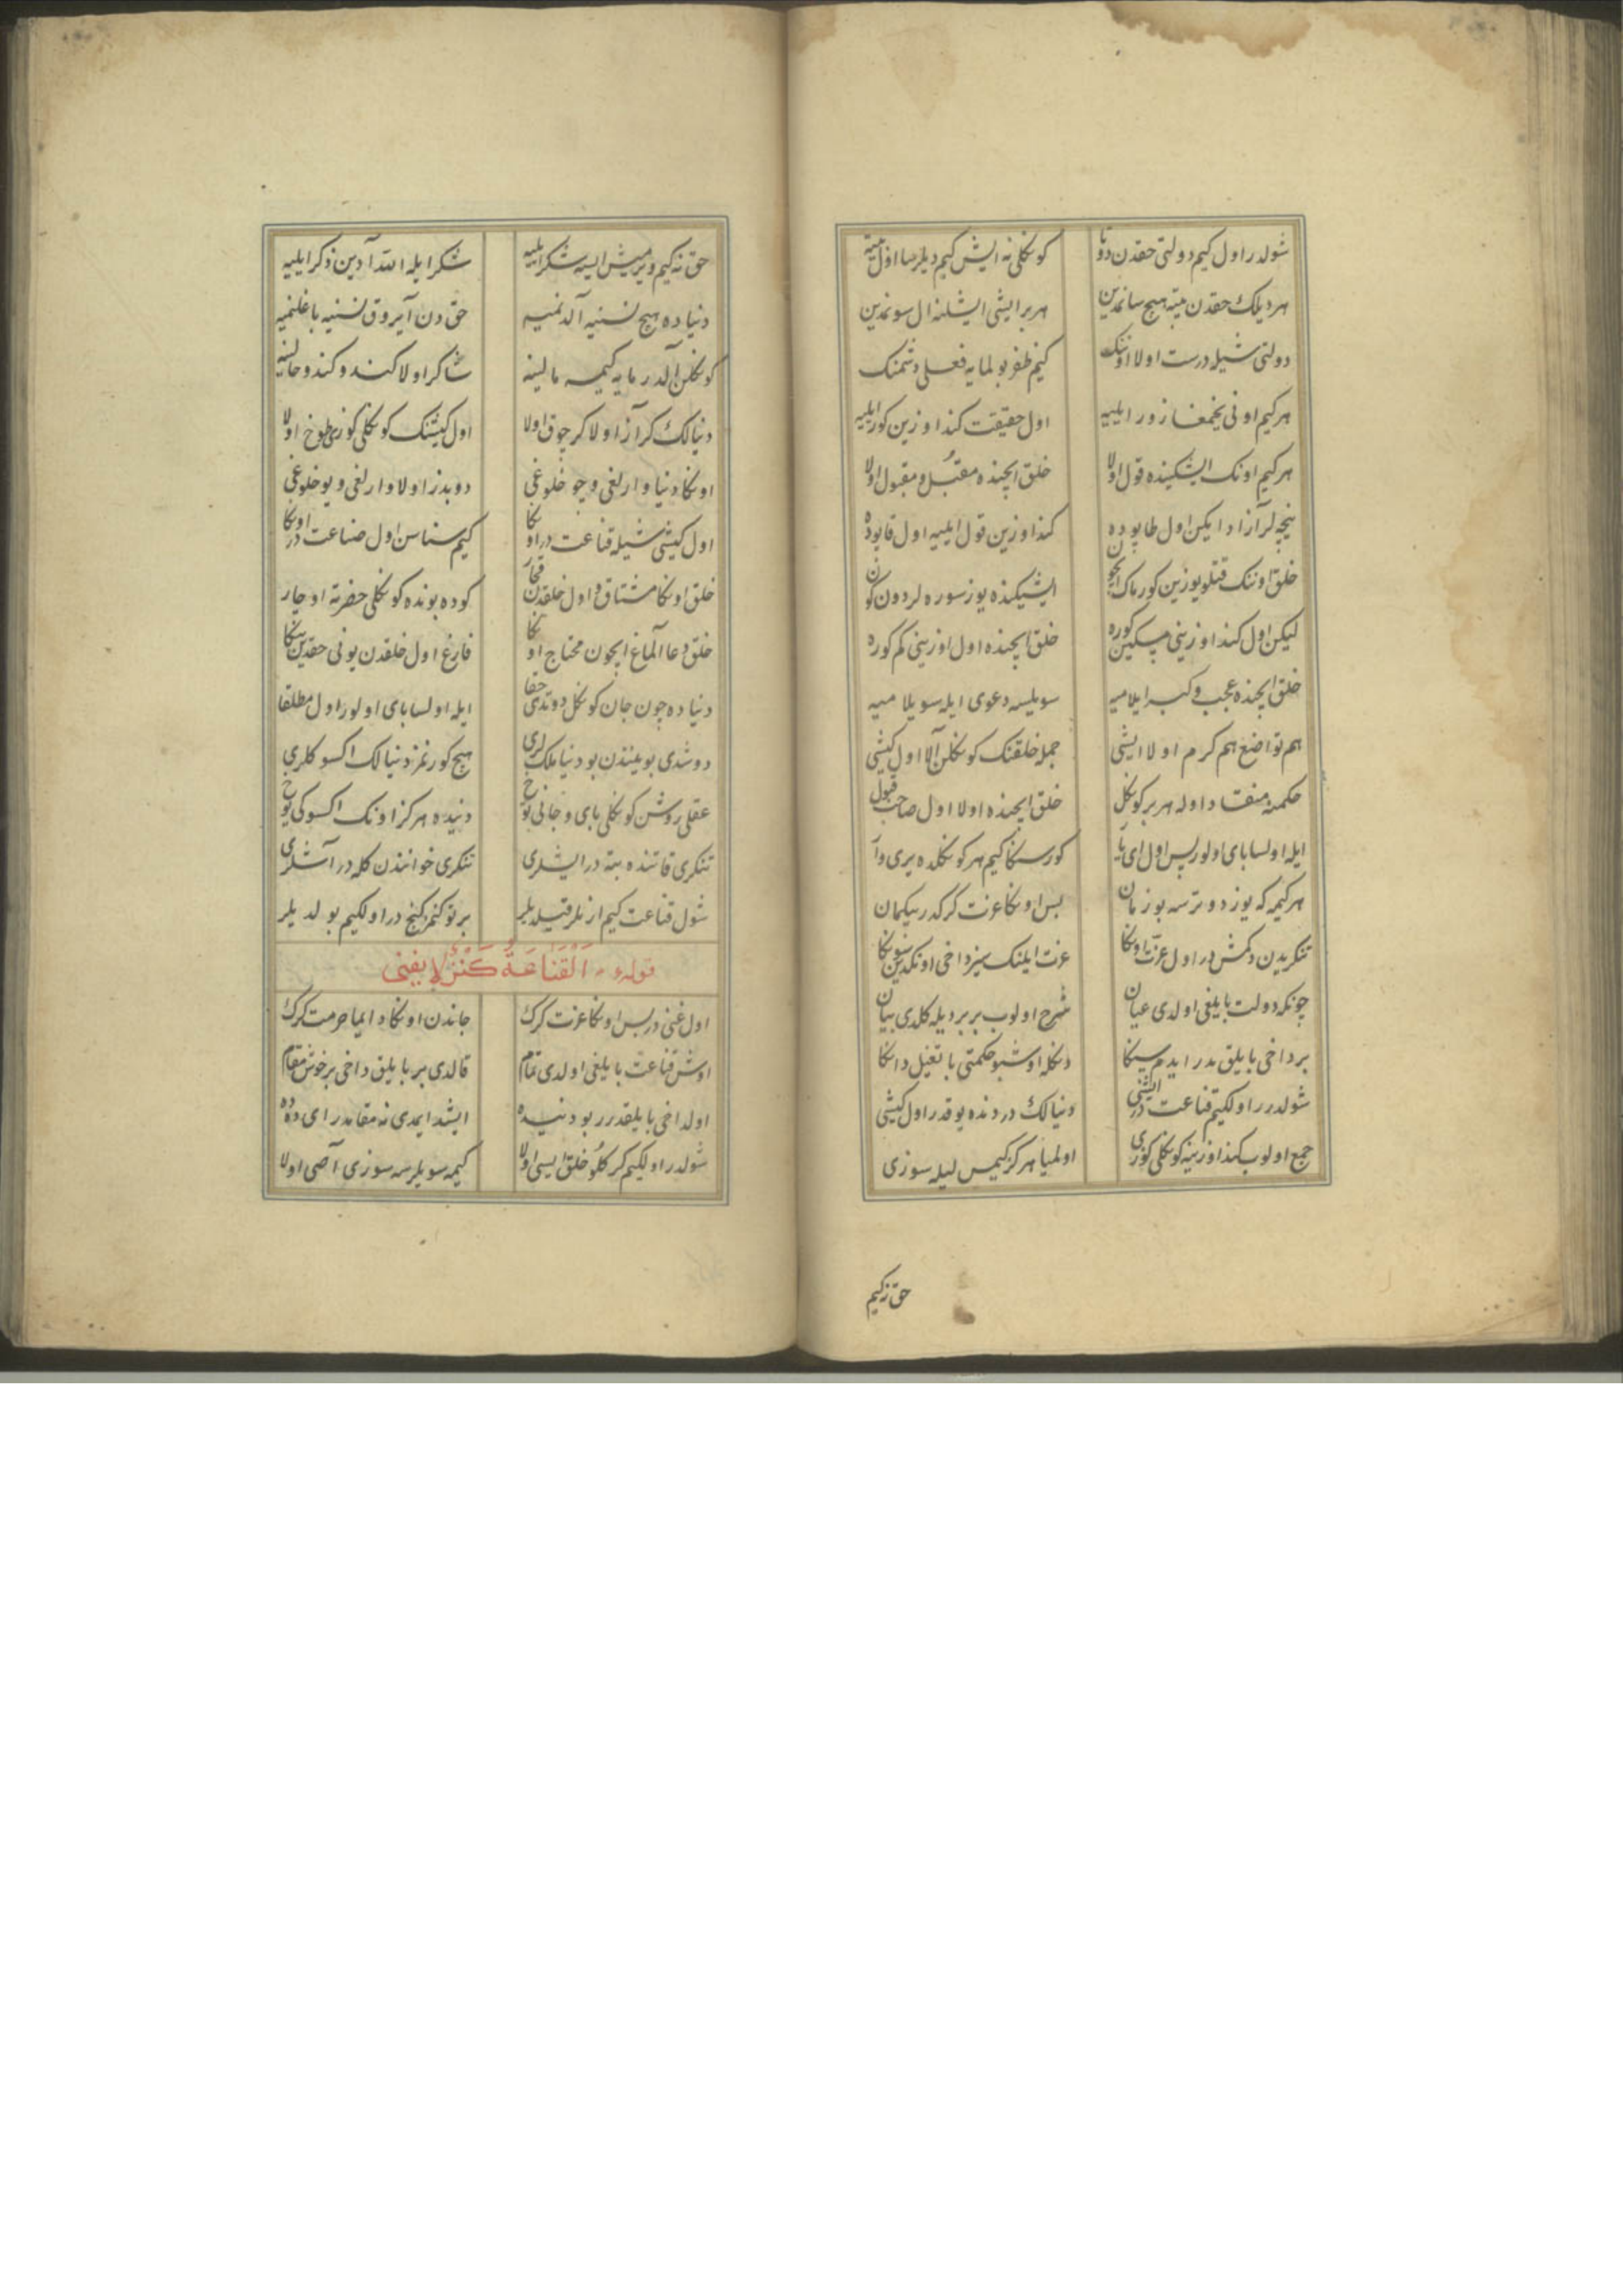 شولدر اول كيم دولتی حقدن دوتا كوڭلی نه ايش كيم ديلرسا اول بيته
هر ديلك حقدن بيته هيچ سانمدين هر بر ايشی ايشلنه ال سونمدين
دولتی شيله درست اولا اونك كيم ظفر بولمايه فعلی دشمنك
هر كيم اونی يخمغا زور ايليه اول حقيقت كند اوزين كور ايليه
هر كيم اونك ايشكينده قول اولا خلق ايچنده مقبل و مقبول اولا
نيچه لر آزاد ايكن اول طاپوده كند اوزين قول ايليه اول قاپوده
خلق اونك قتلو يوزين كورماك ايچون ايشيكنده يوز سوره لر دون كون
ليكن اول كند اوزينی مسكين كوره خلق ايچنده اول اوزينی كم كوره
خلق ايچنده عجب و كبر ايلاميه سويليسه دعوی ايله سويلاميه
هم تواضع هم كرم اولا ايشی جمله خلقنك كوڭلن آلا اول كيشی
حكمنه منقاد اوله هر بر كوڭل خلق ايچنده اولا اول صاحب قبول
ايله اولسا بای اولور پس اول ای يار كورسڭا كيم هر كوڭلده يری وار
هر كيمه كه يوز دوترسه بو زمان بس اوڭا عزت كركدر بيكمان
تنكريدن دكمش در اول عزت اوڭا عزت ايلنك سيز داخی اوندين سوڭا
چونكه دولت بايلغی اولدی عيان شرح اولوب بر بر ديله كلدی بيان
بر داخی بايليق مدر ايدم سيڭا دڭله اوشبو حكمتی باتغيل داڭا
شولدرر اولكيم قناعت در ايشی دنيالك دردنده يوقدر اول كيشی
جمع اولوب كند اوزينه كوڭلی كوزی اولميا هركز كيمس ليله سوزی
حق نه كيم
حق نه كيم ويرميش ايسه شكر ايليه شكر ايله الله آدين ذكر ايليه
دنياده هيچ نسنيه آلدنميه حق دن آيروق نسنيه باغلنميه
كوڭلن آلدرمايه كيمسه مالينه شاكر اولا كندو كندو حالينه
دنيالك كر آز اولا كر چوق اولا اول كيشنك كوڭلی كوزی طوخ اولا
اوڭا دنيا وارلغی و يوخلوغی دوبدز اولا وارلغی و يوخلوغی
اول كيشی شيله قناعت در اوڭا كيم سناسن اول صناعت در اوڭا
خلق اوڭا مشتاق و اول خلقدن قچار كوده بونده كوڭلی حضرته اوچار
خلق دعا آلماغ ايچون محتاج اوڭا فارغ اول خلقدن يونی حقدين ينكا
دنياده چون جان كوڭل دوتدی حقا ايله اولسا بای اولور اول مطلقا
دوشدی بوينندن بو دنيا ملك لری هيچ كورنمز دنيالك اكسوكلری
عقلی روشن كوڭلی بای و جانی توخ دنيده هركز اونك اكسوكی يوخ
تنكری قاتنده بته در ايشلری تنكری خوانندن كله در آشلری
شول قناعت كيم ارنلر قيلديلر بر توكنمز كنج در اولكيم بولديلر
قوله ، اَلْقَنَاعَةُ كَنْزٌ لا يفنى
اول غنی در بس اوڭا عزت كرك جاندن اوڭا دايما حرمت كرك
اوش قناعت بايلغی اولدی تمام قالدی بر بايليق داخی بر خوش مقام
اول داخی بايلقدرر بو دنيده ايشد ايمدی نه مقامدر ای دده
شولدر اولكيم كركلو خلق ايسی اولا كيمه سويلرسه سوزی آصی اولا